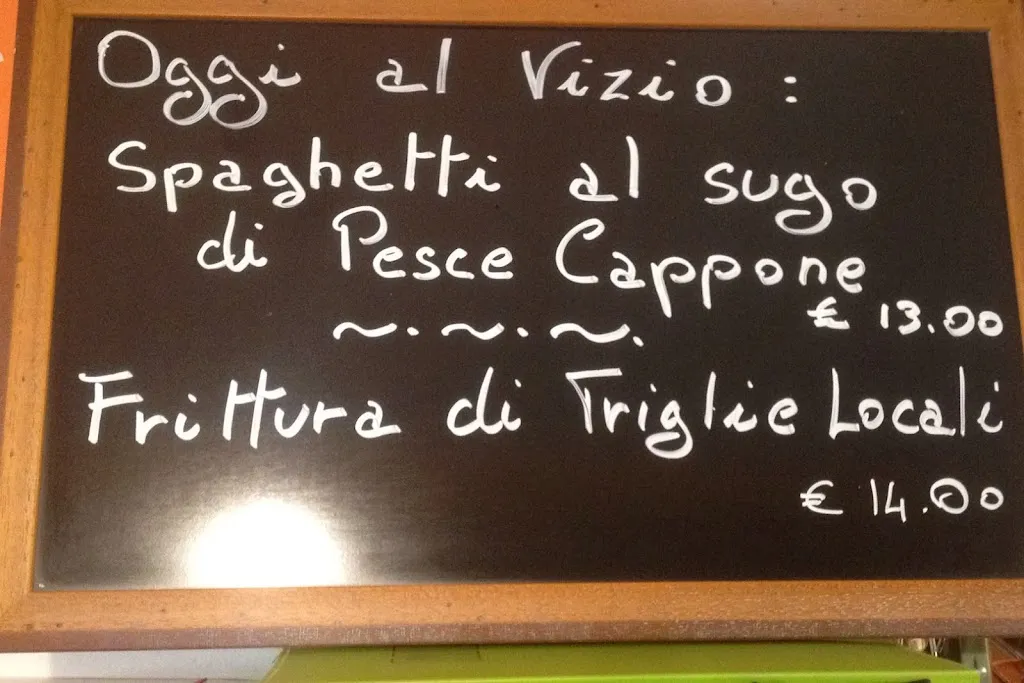 Oggi al Vizio :
Spaghetti al sugo
di Pesce Cappone
€ 13.00
~.~.~.
Frittura di Triglie Locali
€ 14.00